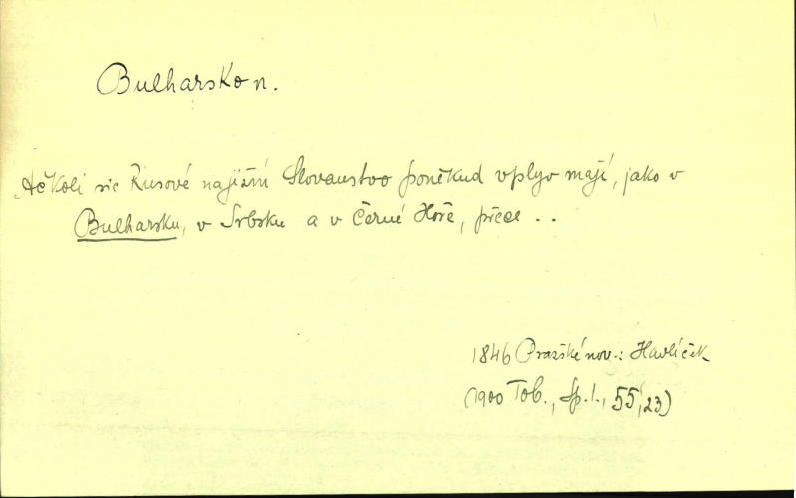 Bulharsko n.
Ačkoli sic Rusové najižní Slovanstvo poněkud vplyv mají, jako v
Bulharsku, v Srbsku a v Černé Hoře, přece . .
1846 Pražské nov.: Havlíček
(1900 Tob., Sp. I., 55, 23)